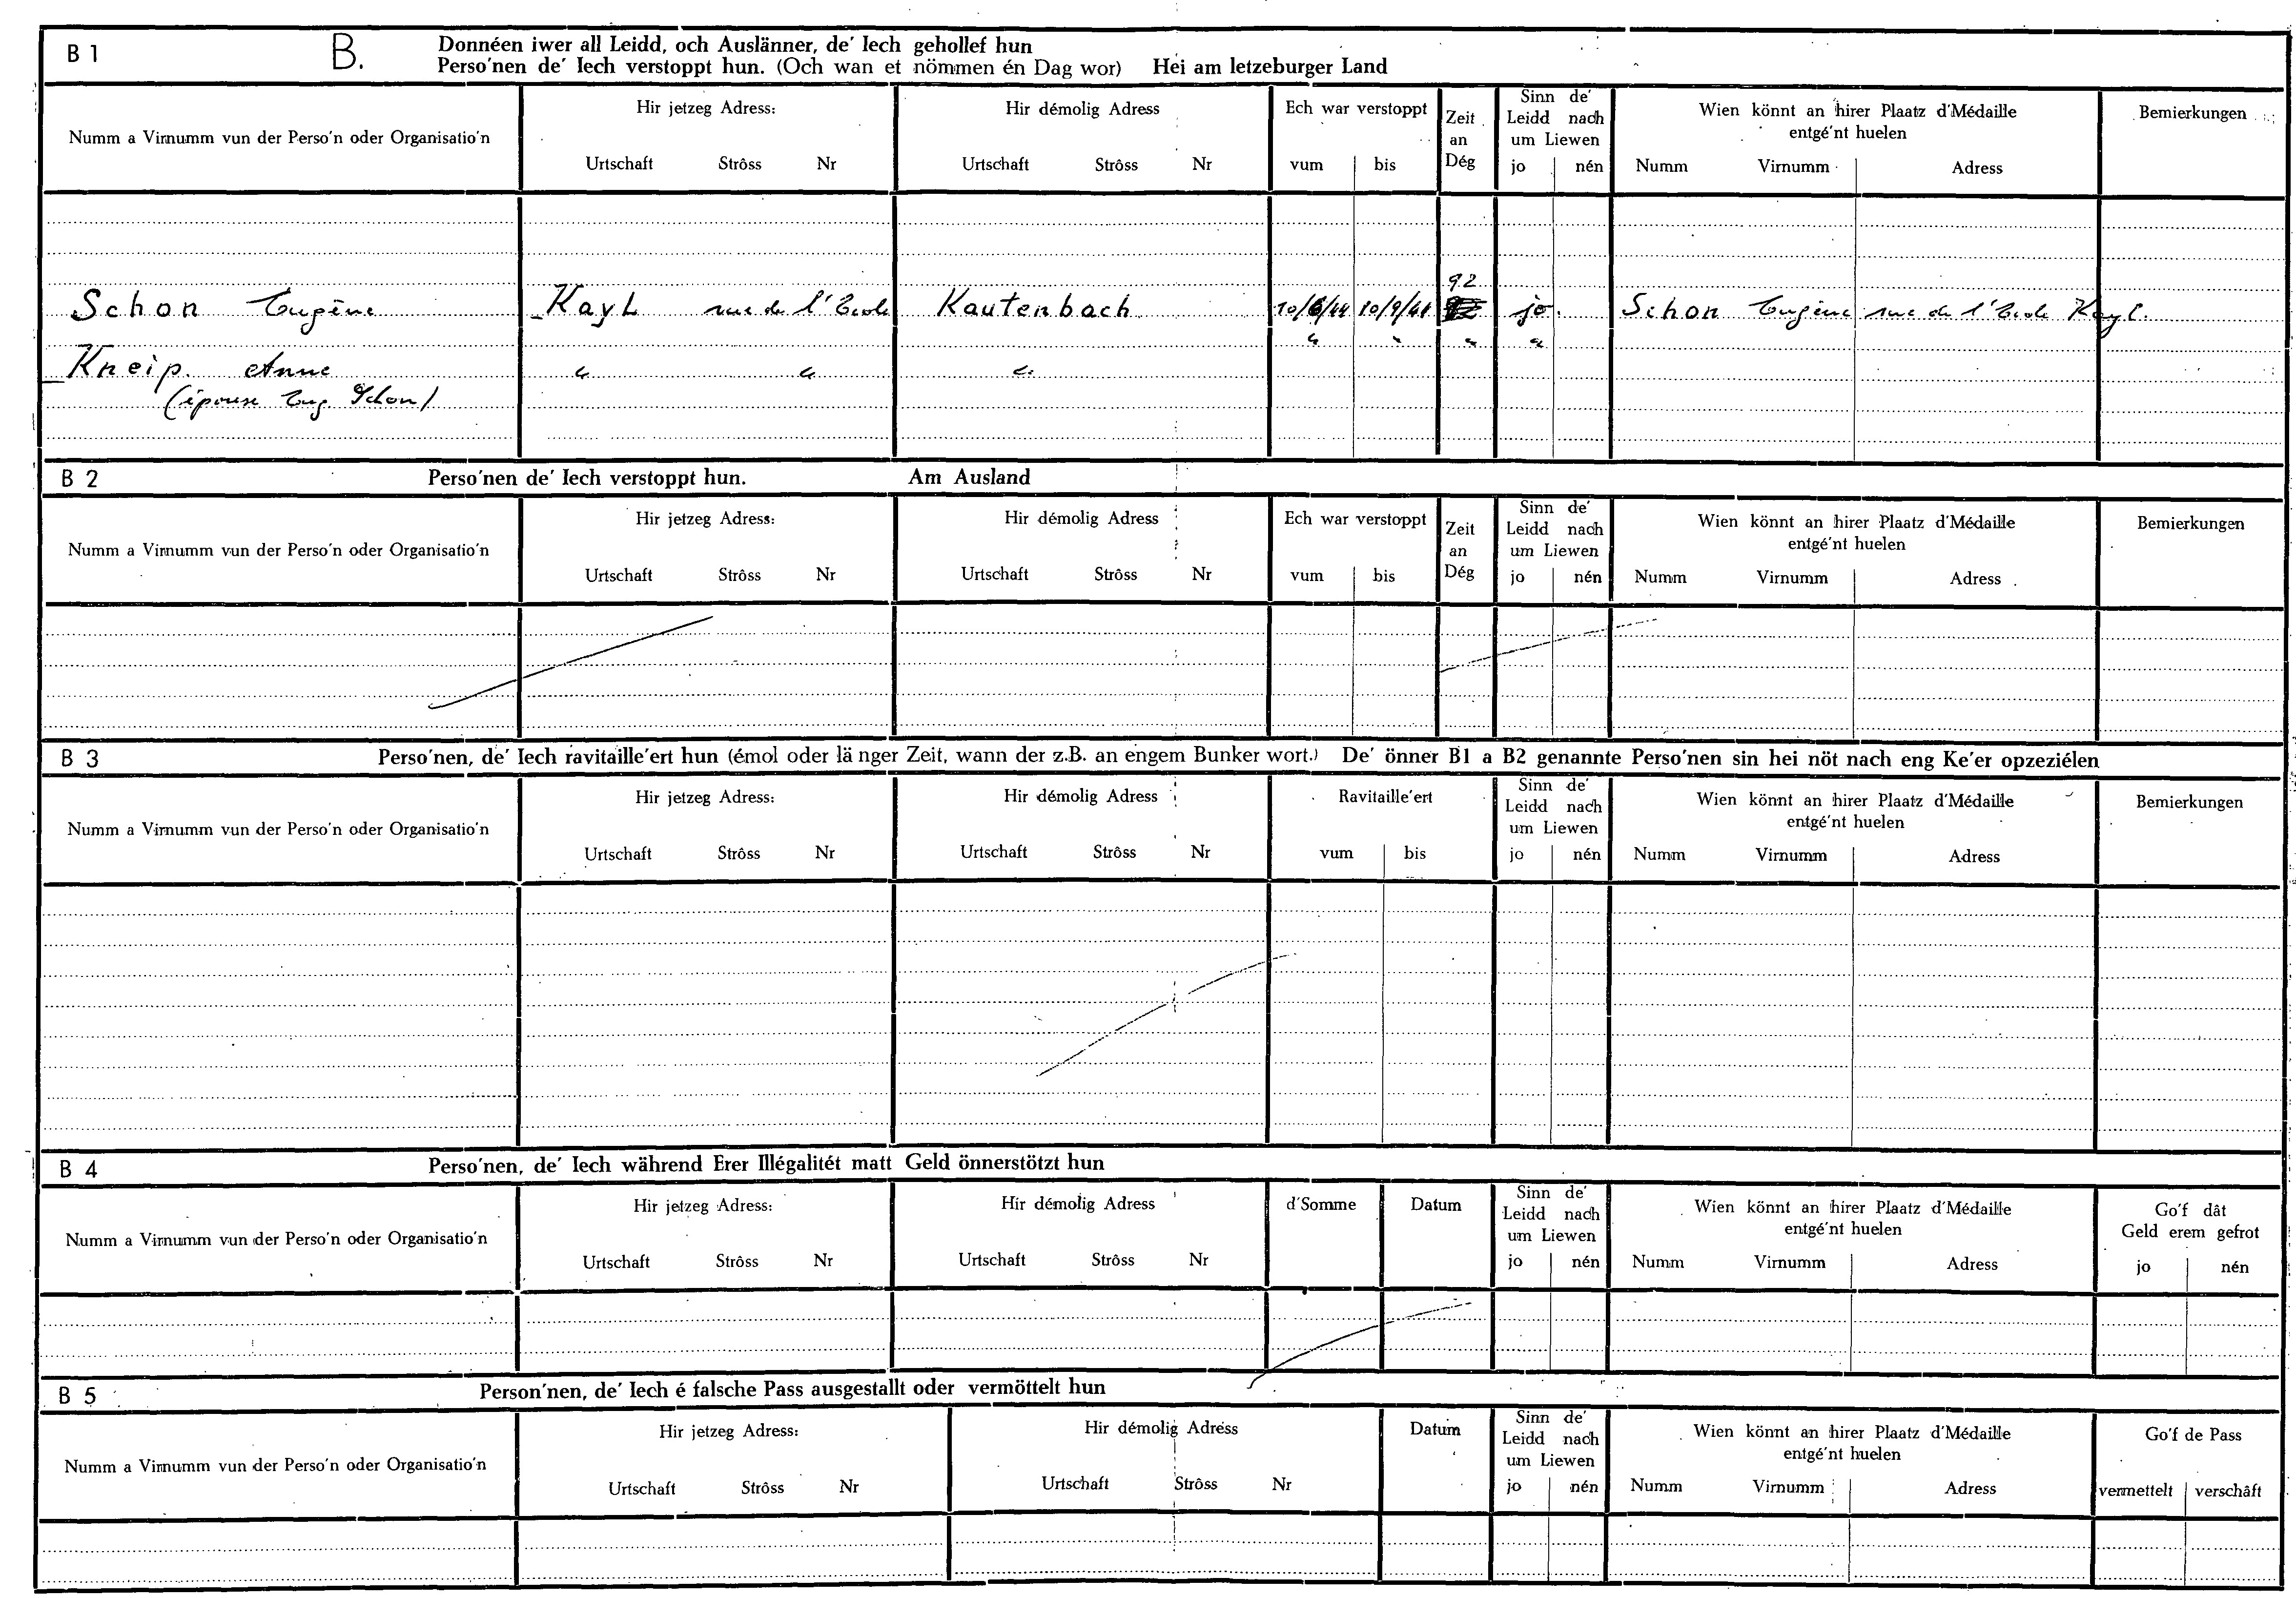 B 1 B. Donnéen iwer all Leidd, och Auslänner, de' Iech gehollef hun
Perso'nen de' Iech verstoppt hun. (Och wan et nömmen én Dag wor) Hei am letzeburger Land
Numm a Virnumm vun der Perso'n oder Organisatio'n
Hir jetzeg Adress:
Urtschaft Strôss Nr
Hir démolig Adress
Urtschaft Strôss Nr
Ech war verstoppt
vum bis
Zeit
an
Dég
Sinn de'
Leidd nach
um Liewen
jo nén
Wien könnt an hirer Plaatz d'Médaille
entgé'nt huelen
Numm Virnumm Adress
Bemierkungen
92
Schon Eugène Kayl rue de l'Ecole Kautenbach 10/6/44 10/9/44 jo. Schon Eugène rue de l'Ecole Kayl.
" " " "
Kneip Anne " " "
(épouse Eug. Schon)
B 2 Perso'nen de' Iech verstoppt hun. Am Ausland
Numm a Virnumm vun der Perso'n oder Organisatio'n
Hir jetzeg Adress:
Urtschaft Strôss Nr
Hir démolig Adress
Urtschaft Strôss Nr
Ech war verstoppt
vum bis
Zeit
an
Dég
Sinn de'
Leidd nach
um Liewen
jo nén
Wien könnt an hirer Plaatz d'Médaille
entgé'nt huelen
Numm Virnumm Adress
Bemierkungen
B 3 Perso'nen, de' Iech ravitaille'ert hun (émol oder länger Zeit, wann der z.B. an engem Bunker wort.) De' önner B1 a B2 genannte Perso'nen sin hei nöt nach eng Ke'er opzeziélen
Numm a Virnumm vun der Perso'n oder Organisatio'n
Hir jetzeg Adress:
Urtschaft Strôss Nr
Hir démolig Adress
Urtschaft Strôss Nr
Ravitaille'ert
vum bis
Sinn de'
Leidd nach
um Liewen
jo nén
Wien könnt an hirer Plaatz d'Médaille
entgé'nt huelen
Numm Virnumm Adress
Bemierkungen
B 4 Perso'nen, de' Iech während Erer Illégalitét matt Geld önnerstötzt hun
Numm a Virnumm vun der Perso'n oder Organisatio'n
Hir jetzeg Adress:
Urtschaft Strôss Nr
Hir démolig Adress
Urtschaft Strôss Nr
d'Somme
Datum
Sinn de'
Leidd nach
um Liewen
jo nén
Wien könnt an hirer Plaatz d'Médaille
entgé'nt huelen
Numm Virnumm Adress
Go'f dât
Geld erem gefrot
jo nén
B 5 Person'nen, de' Iech é falsche Pass ausgestallt oder vermöttelt hun
Numm a Virnumm vun der Perso'n oder Organisatio'n
Hir jetzeg Adress:
Urtschaft Strôss Nr
Hir démolig Adress
Urtschaft Strôss Nr
Datum
Sinn de'
Leidd nach
um Liewen
jo nén
Wien könnt an hirer Plaatz d'Médaille
entgé'nt huelen
Numm Virnumm Adress
Go'f de Pass
vermettelt verschâft